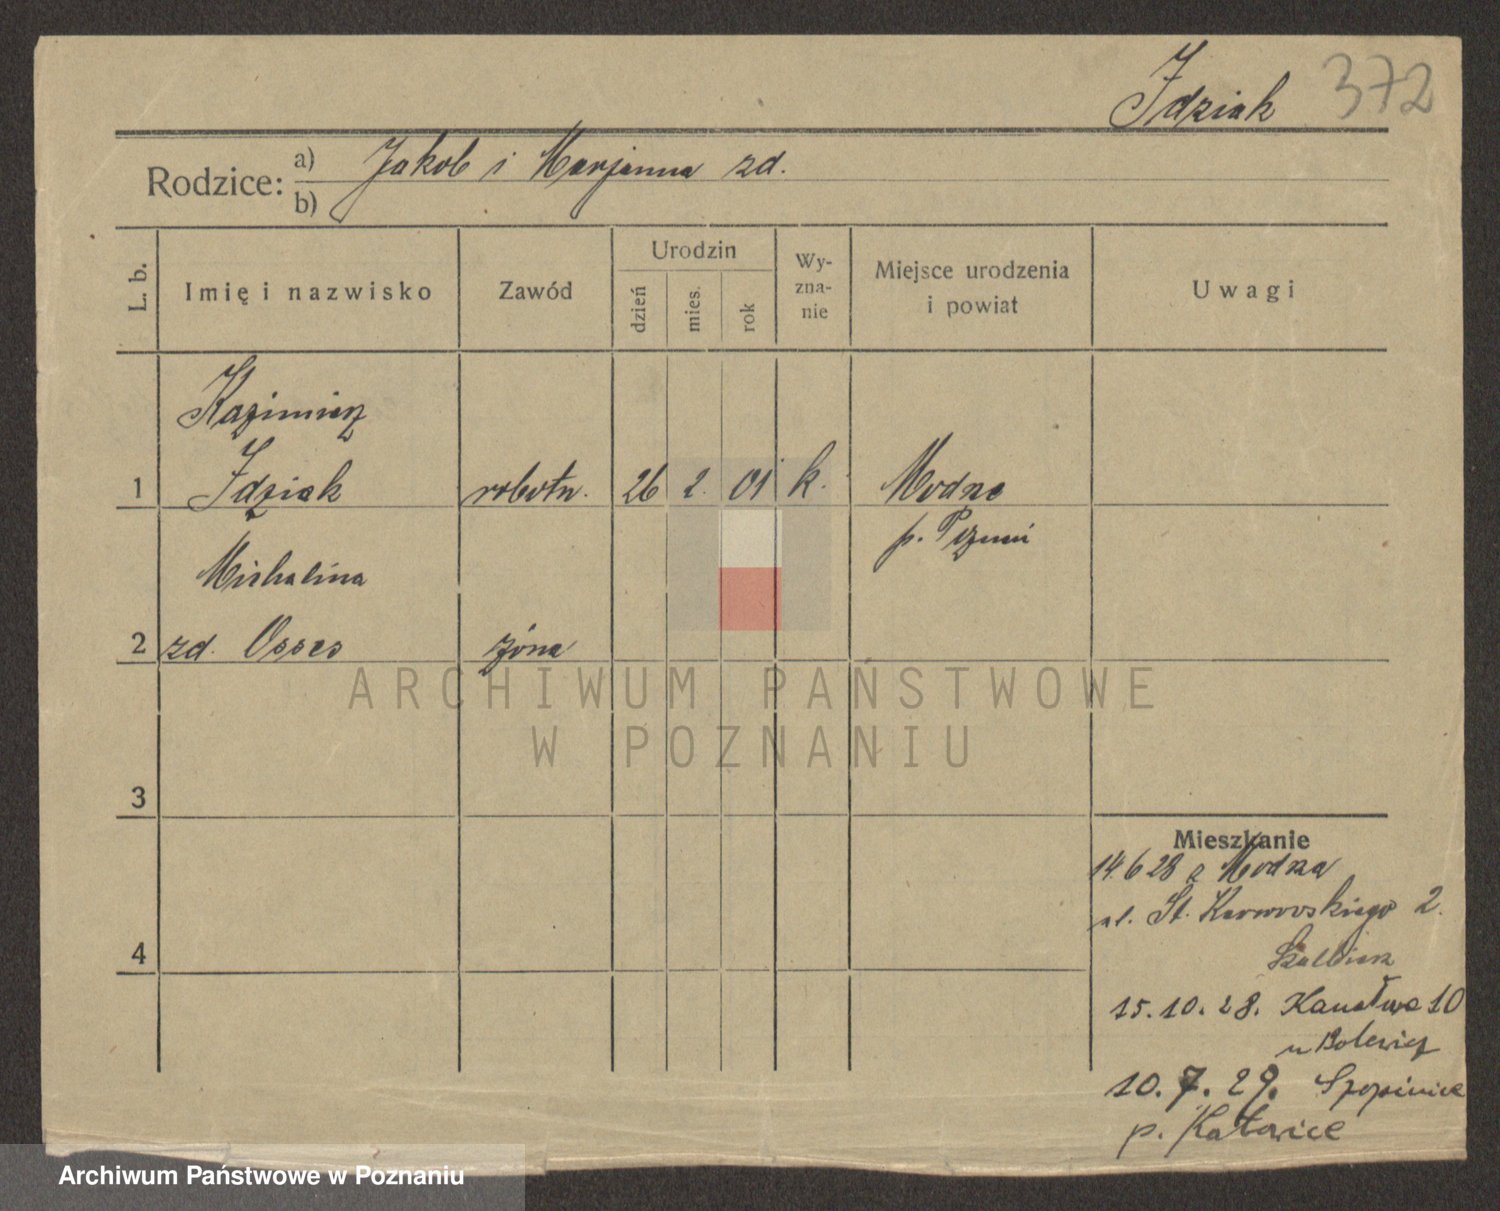 Idziak 372
Rodzice: a) Jakob i Marjanna zd.
b)
L. b.
Imię i nazwisko
Zawód
Urodzin
dzień
mies.
rok
Wy-
zna-
nie
Miejsce urodzenia
i powiat
Uwagi
Kazimierz
1 Idziak robotn. 26 2. 01 k. Modze
p. Pozmań
Michalina
2 zd. Osses żona
ARCHIWUM PAŃSTWOWE
W POZNANIU
3
Mieszkanie
14.6 28 z Modza
ul. St. Karwowskiego 2.
4
15.10.28. Kanałwa 10
u Bolewicz
10.7.29. Szopinice
p. Katowice
Archiwum Państwowe w Poznaniu